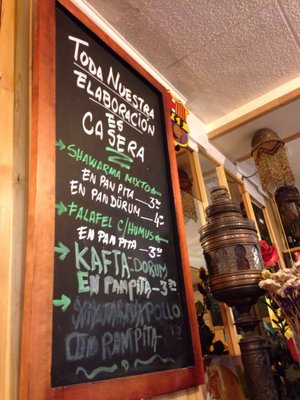 TODA NUESTRA
ELABORACIÓN
ES
CASERA
SHAWARMA MIXTO
EN PAN PITA 3€
EN PAN DÜRUM 4€
FALAFEL C/HUMUS
EN PAN PITA 3€
KAFTA-DORUM
EN PAMPITA 3€
POLLO
PITA